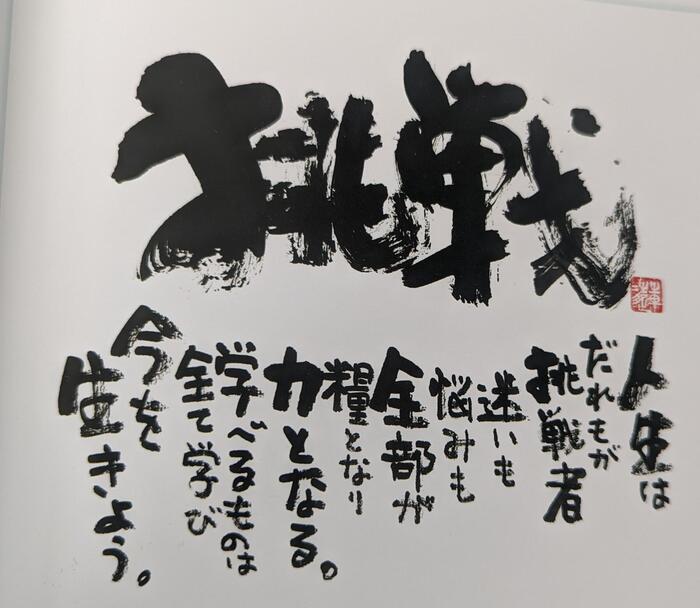 挑戦
人生は
だれもが
挑戦者
迷いも
悩みも
全部が
糧となり
力となる。
学べるものは
全て学び
今を
生きよう。